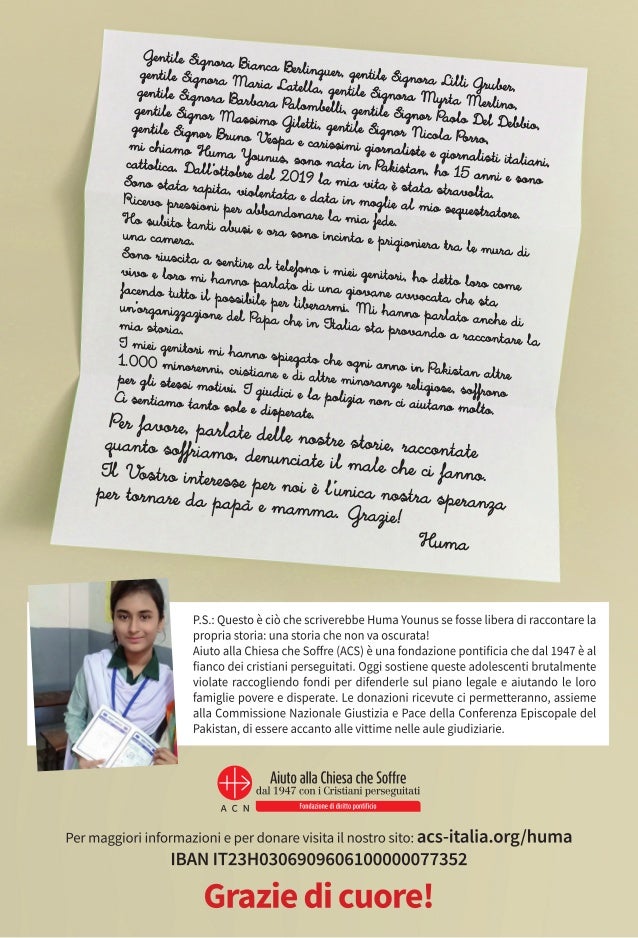 Gentile Signora Bianca Berlinguer, gentile Signora Lilli Gruber,
gentile Signora Maria Latella, gentile Signora Myrta Merlino,
gentile Signora Barbara Palombelli, gentile Signor Paolo Del Debbio,
gentile Signor Massimo Giletti, gentile Signor Nicola Porro,
gentile Signor Bruno Vespa e carissimi giornaliste e giornalisti italiani,
mi chiamo Huma Younus, sono nata in Pakistan, ho 15 anni e sono
cattolica. Dall'ottobre del 2019 la mia vita è stata stravolta.
Sono stata rapita, violentata e data in moglie al mio sequestratore.
Ricevo pressioni per abbandonare la mia fede.
Ho subito tanti abusi e ora sono incinta e prigioniera tra le mura di
una camera.
Sono riuscita a sentire al telefono i miei genitori, ho detto loro come
vivo e loro mi hanno parlato di una giovane avvocata che sta
facendo tutto il possibile per liberarmi. Mi hanno parlato anche di
un'organizzazione del Papa che in Italia sta provando a raccontare la
mia storia.
I miei genitori mi hanno spiegato che ogni anno in Pakistan altre
1.000 minorenni, cristiane e di altre minoranze religiose, soffrono
per gli stessi motivi. I giudici e la polizia non ci aiutano molto.
Ci sentiamo tanto sole e disperate.
Per favore, parlate delle nostre storie, raccontate
quanto soffriamo, denunciate il male che ci fanno.
Il Vostro interesse per noi è l'unica nostra speranza
per tornare da papà e mamma. Grazie!
Huma
P.S.: Questo è ciò che scriverebbe Huma Younus se fosse libera di raccontare la
propria storia: una storia che non va oscurata!
Aiuto alla Chiesa che Soffre (ACS) è una fondazione pontificia che dal 1947 è al
fianco dei cristiani perseguitati. Oggi sostiene queste adolescenti brutalmente
violate raccogliendo fondi per difenderle sul piano legale e aiutando le loro
famiglie povere e disperate. Le donazioni ricevute ci permetteranno, assieme
alla Commissione Nazionale Giustizia e Pace della Conferenza Episcopale del
Pakistan, di essere accanto alle vittime nelle aule giudiziarie.
Aiuto alla Chiesa che Soffre
dal 1947 con i Cristiani perseguitati
A C N
Fondazione di diritto pontificio
Per maggiori informazioni e per donare visita il nostro sito: acs-italia.org/huma
IBAN IT23H0306909606100000077352
Grazie di cuore!